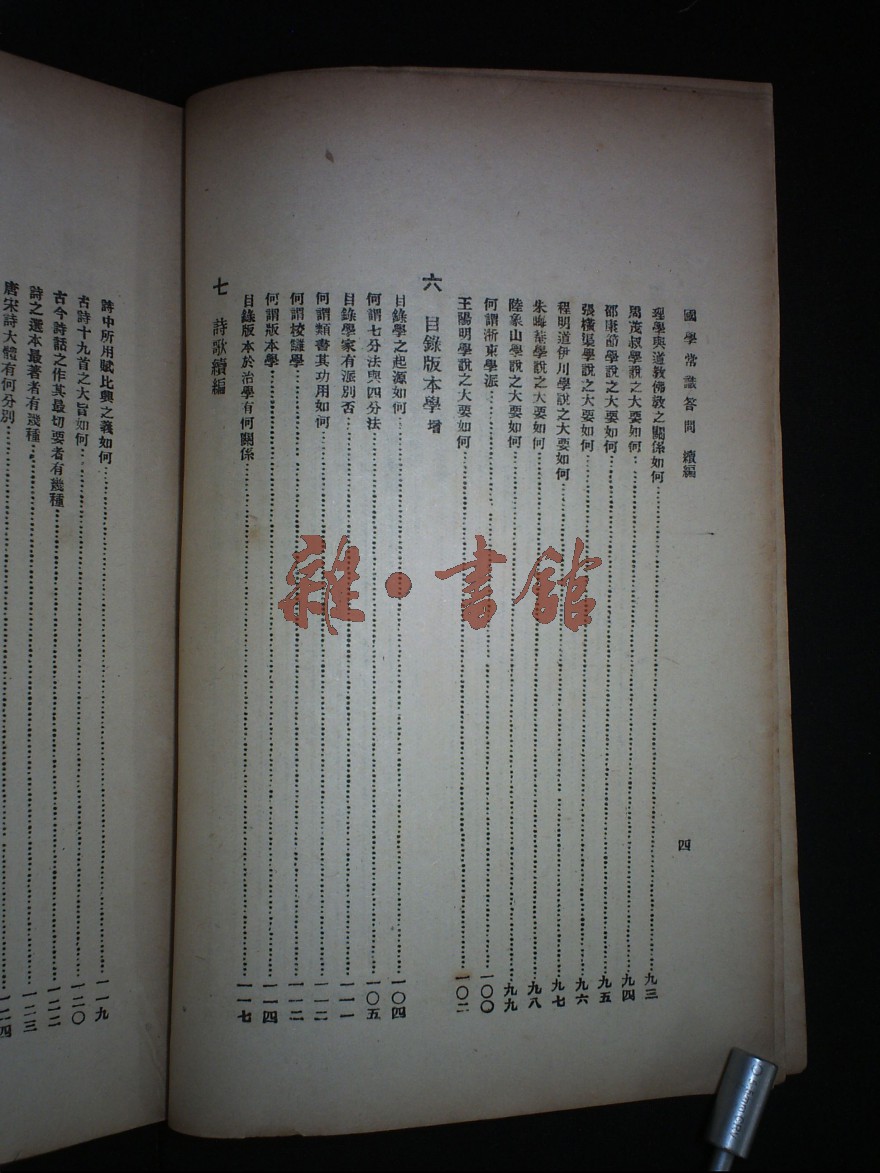 國學常識答問 續編
四
理學與道教佛教之關係如何……九三
周茂叔學說之大要如何……九四
邵康節學說之大要如何……九五
張橫渠學說之大要如何……九六
程明道伊川學說之大要如何……九七
朱晦菴學說之大要如何……九八
陸象山學說之大要如何……九九
何謂浙東學派……一〇〇
王陽明學說之大要如何……一〇二
六 目錄版本學 增
目錄學之起源如何……一〇四
何謂七分法與四分法……一〇五
目錄學家有派別否……一一一
何謂類書其功用如何……一一二
何謂校讎學……一一二
何謂版本學……一一四
目錄版本於治學有何關係……一一七
七 詩歌續編
詩中所用賦比興之義如何……一一九
古詩十九首之大旨如何……一二〇
古今詩話之作其最切要者有幾種……一二二
詩之選本最著者有幾種……一二三
唐宋詩大體有何分別……一二四
雜·書館